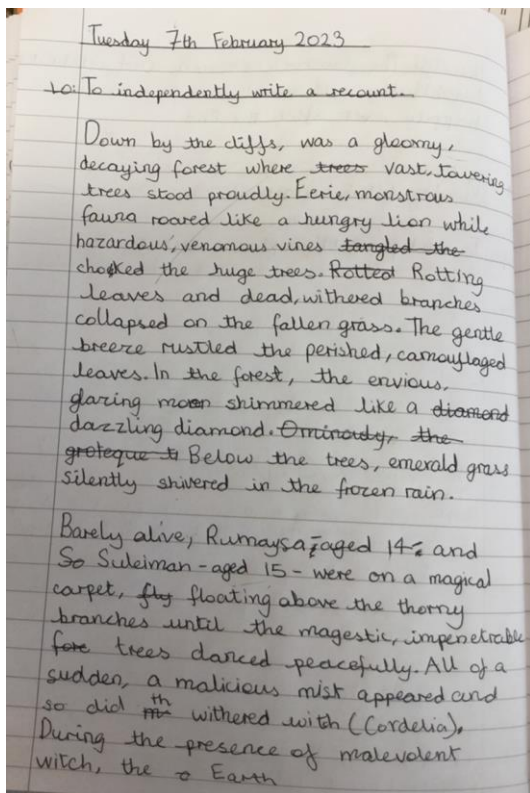 Tuesday 7th February 2023
LO: To independently write a recount.
Down by the cliffs, was a gloomy,
decaying forest where trees vast, towering
trees stood proudly. Eerie, monstrous
fauna roared like a hungry lion while
hazardous, venomous vines tangled the
choked the huge trees. Rotted Rotting
leaves and dead, withered branches
collapsed on the fallen grass. The gentle
breeze rustled the perished, camouflaged
leaves. In the forest, the envious,
glaring moon shimmered like a diamond
dazzling diamond. Ominously, the
groteque Below the trees, emerald grass
silently shivered in the frozen rain.
Barely alive, Rumaysa - aged 14 - and
So Suleiman - aged 15 - were on a magical
carpet, fly floating above the thorny
branches until the magestic, impenetrable
fore trees danced peacefully. All of a
sudden, a malicious mist appeared and
so did th withered with (Cordelia).
During the presence of malevolent
witch, the Earth